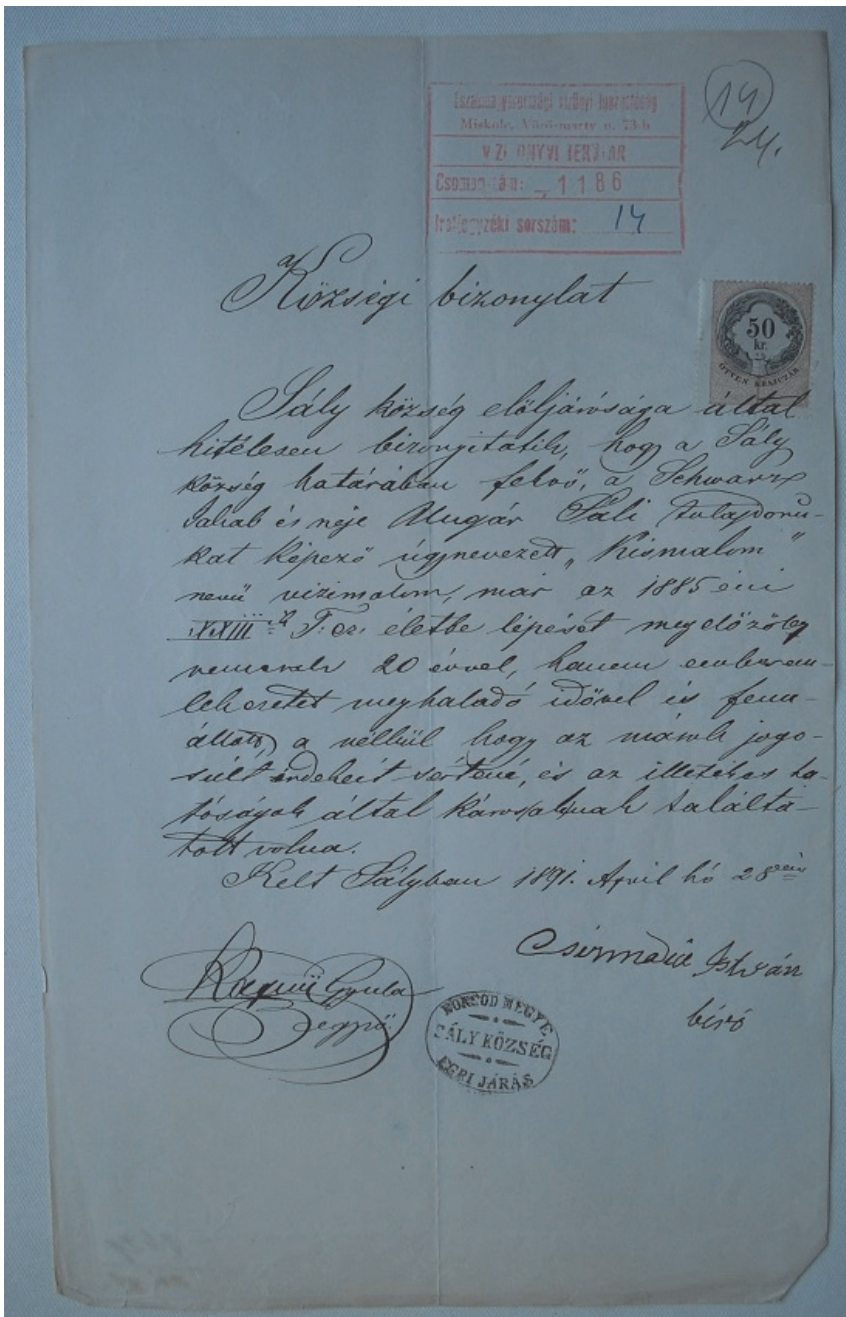 14
24.
Északmagyarországi Vízügyi Igazgatóság
Miskolc, Vörösmarty u. 73.
VÍZIKÖNYVI TERVTÁR
Csomag szám: 1186
Iratjegyzéki sorszám: 14
Községi bizonylat
50
kr.
ÖTVEN KRAJCZÁR
Sály község előljárósága által
hitelesen bizonyitatik, hogy a Sály
község határában felvő, a Schwarz
Jakab és neje Ungár Sáli tulajdonu-
kat képező úgynevezett „Kismalom”
nevü vizimalom, már az 1885 évi
XXIII ik T. cz. életbe lépését megelőzőleg
nemcsak 20 évvel, hanem emberem-
lékezetet meghaladó idővel is fenn-
állott, a nélkül hogy az mások jogo-
sult érdekeit sértené, és az illetékes ha-
tóságok által károsaknak találta-
tott volna.
Kelt Sályban 1891. April hó 28 án
István
Gyula
biró
jegyző.
BORSOD MEGYE.
SÁLY KÖZSÉG
EGRI JÁRÁS